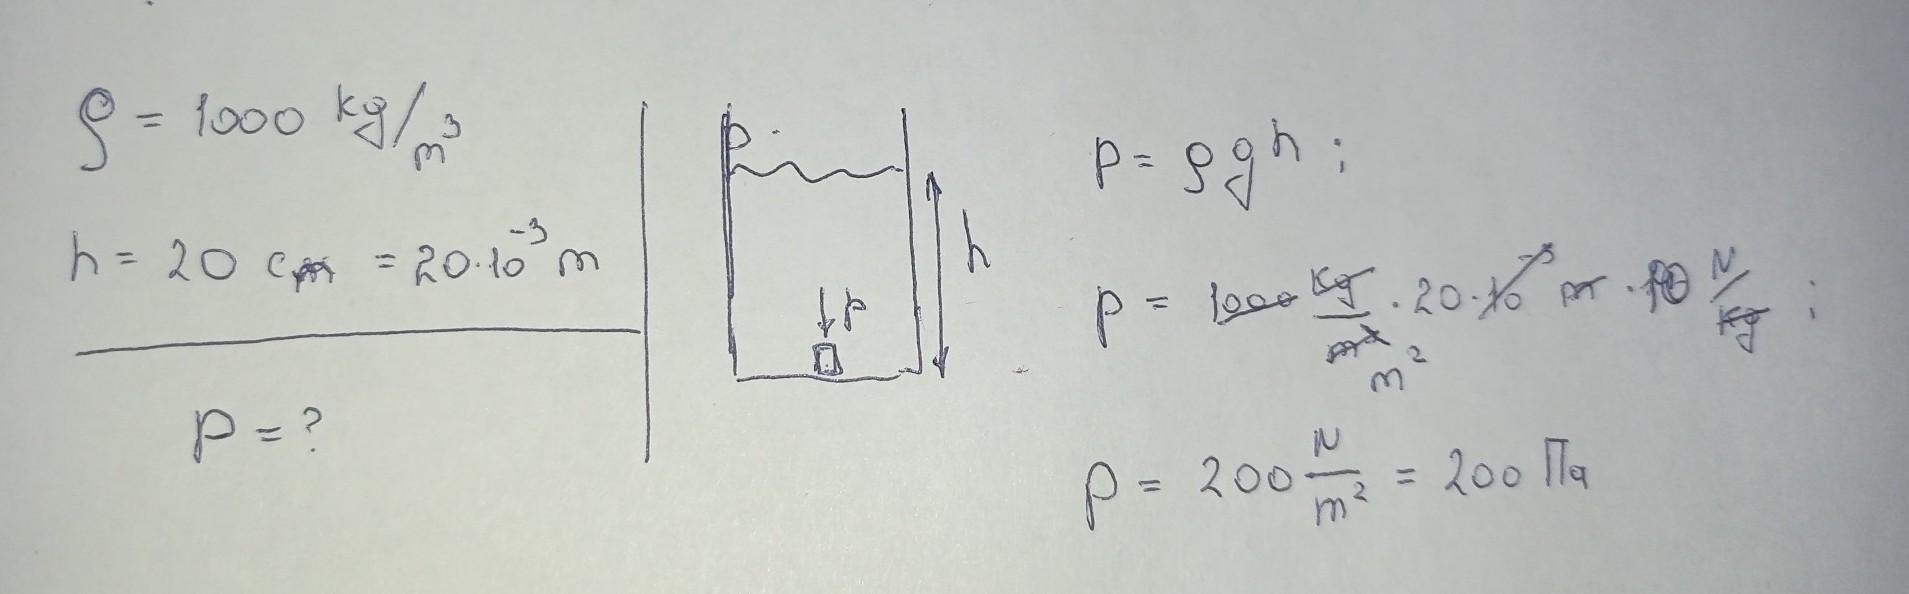 ρ = 1000 kg/m³
h = 20 cm = 20·10⁻³ m
p = ?
p
p
h
p = ρgh;
p = 1000 kg/m³ · 20·10⁻³ m · 10 N/kg;
m²
p = 200 N/m² = 200 Па